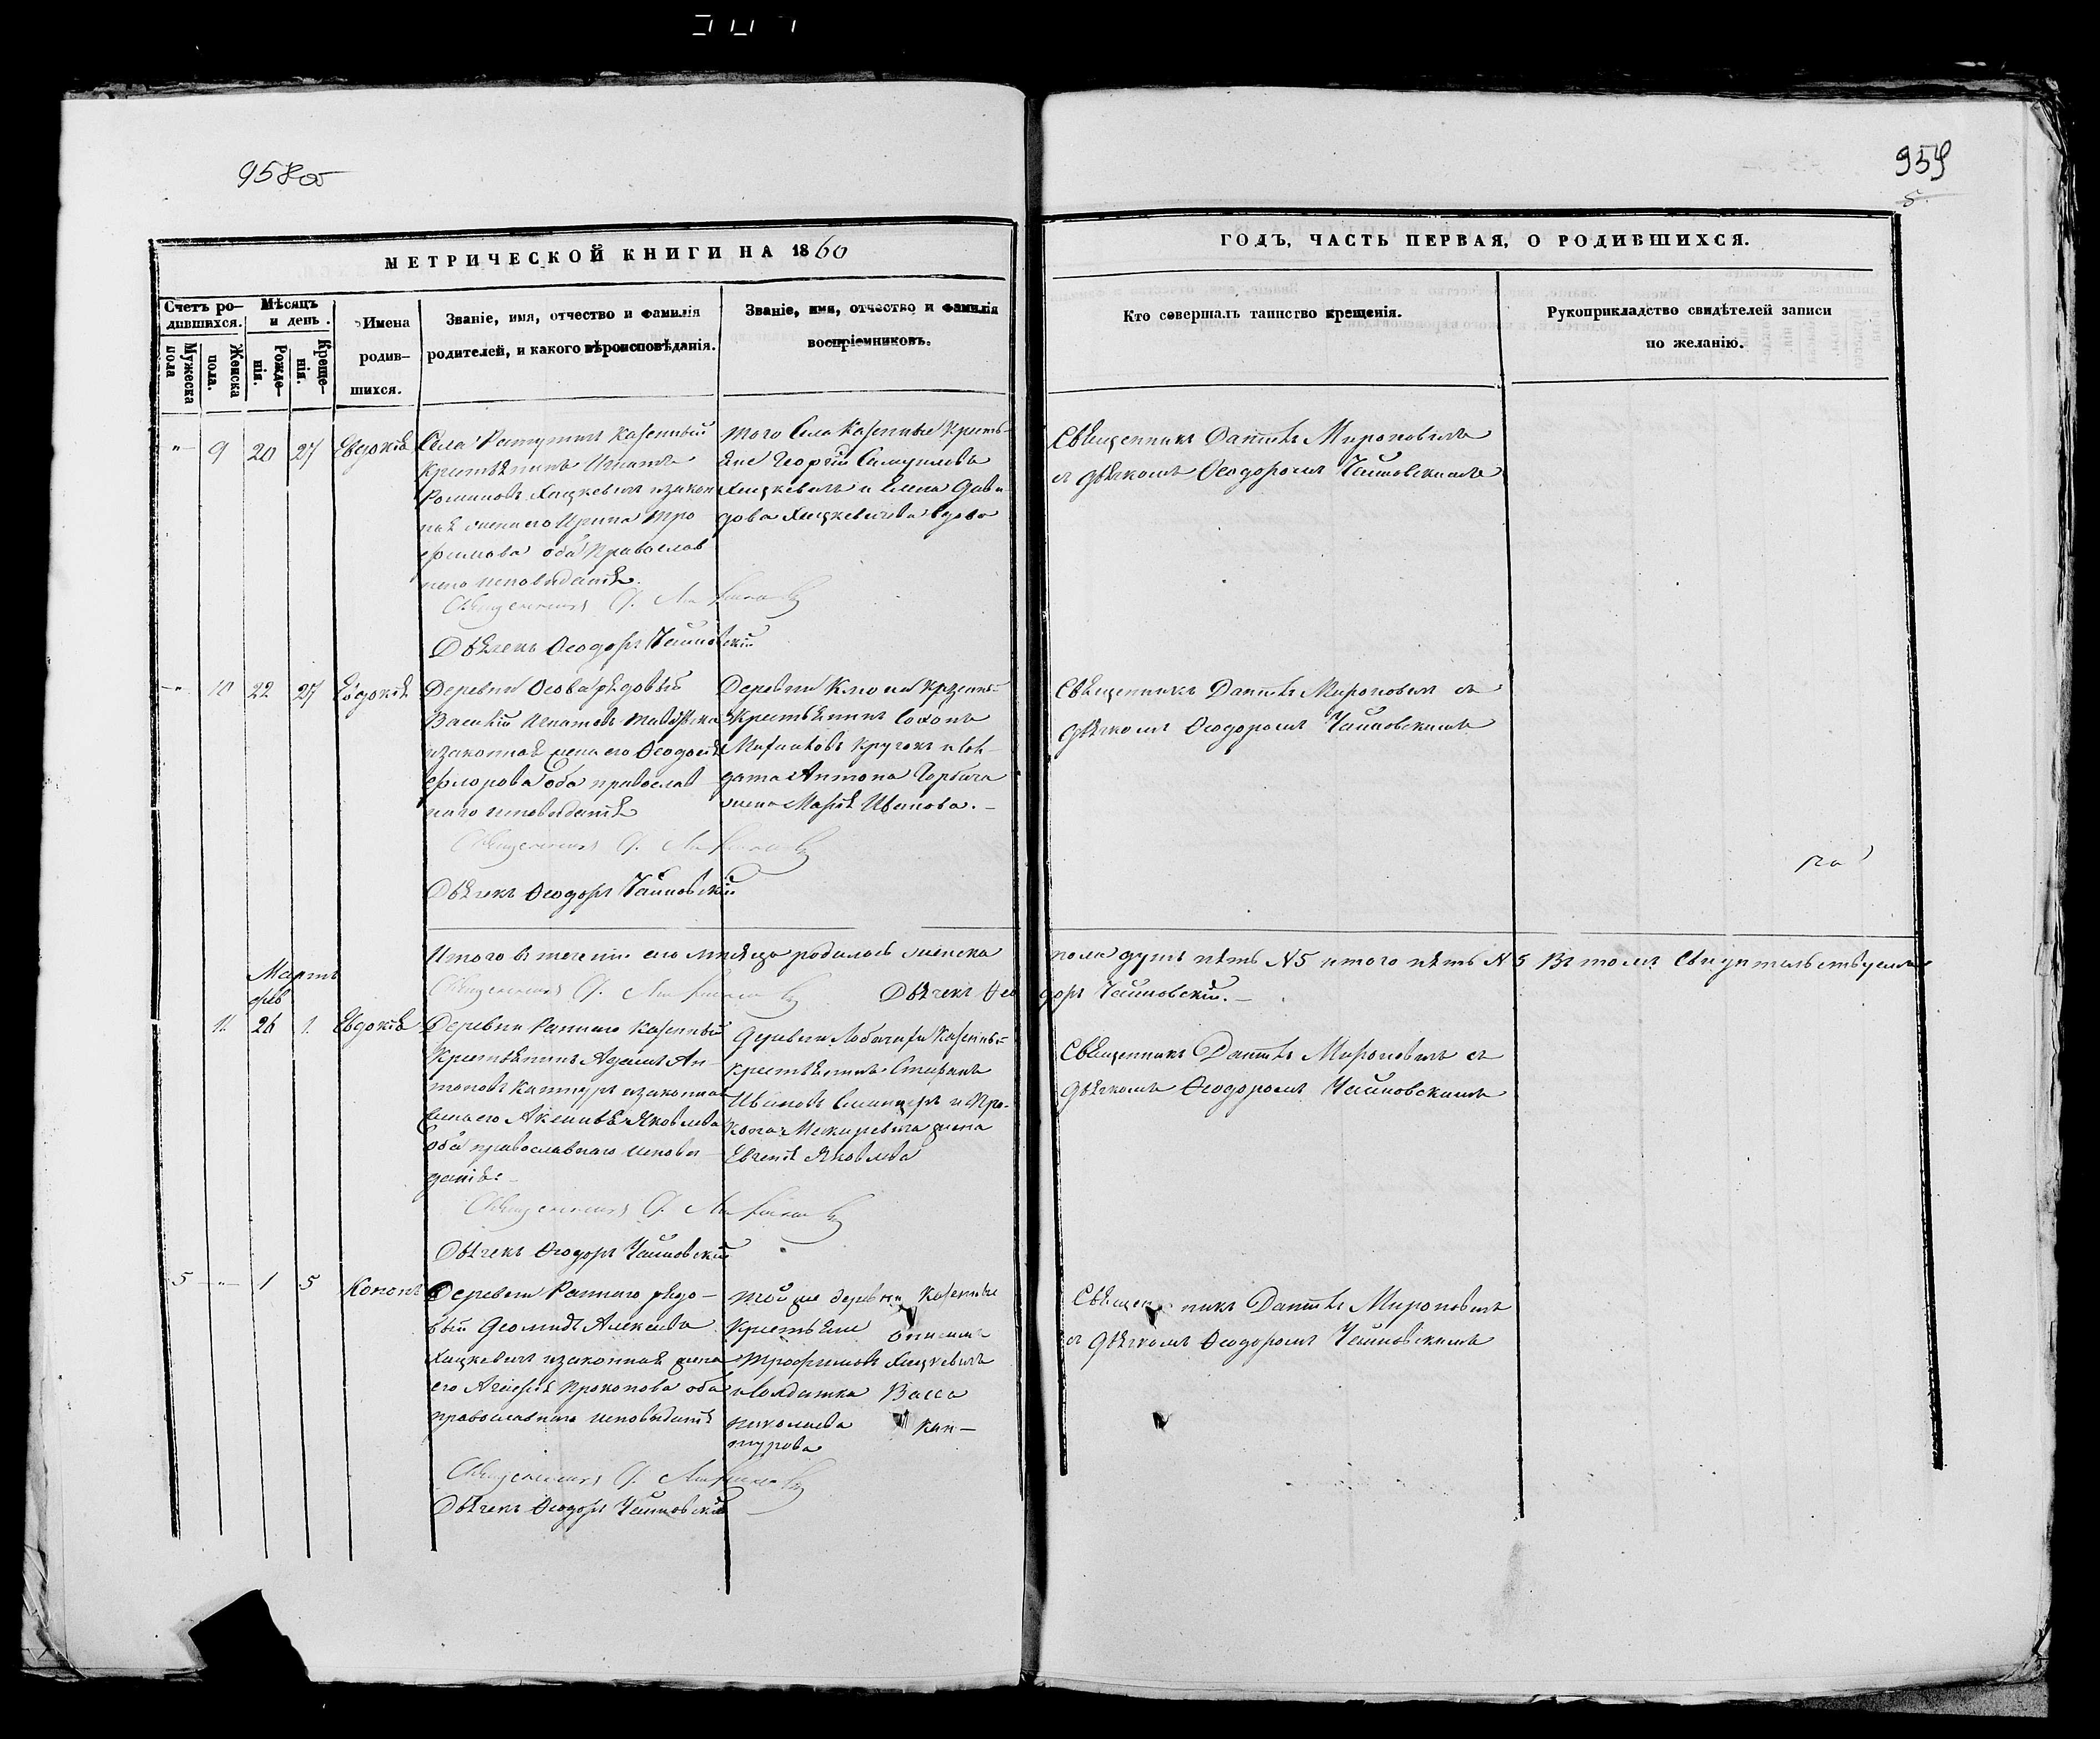 958об
959
5
МЕТРИЧЕСКОЙ КНИГИ НА 1860
ГОДЪ, ЧАСТЬ ПЕРВАЯ, О РОДИВШИХСЯ.
Счетъ ро-
дившихся.
Мужеска
пола
Женска
пола.
Мѣсяцъ
и день.
Рожде-
нія.
Креще-
нія.
Имена
родив-
шихся.
Званіе, имя, отчество и фамилія
родителей, и какого вѣроисповѣданія.
Званіе, имя, отчество и фамилія
воспріемниковъ.
Кто совершалъ таинство крещенія.
Рукоприкладство свидѣтелей записи
по желанію.
" 9 20 27 Евдокія
Села Казенный
Крестьянинъ Игнатъ
Романовъ Хицкевичъ изакон
ная жена его Ирина Тро
фимова оба Православ
наго исповѣданія.
Священникъ
Дьячекъ Ѳеодоръ Чайновскій
того Села Казенные Кресть-
яне Георгій Самуиловъ
Хицкевичъ и Елена Дави
дова Хицкевичева вдова
Священникъ Даніилъ Мироновичъ
съ дьячкомъ Ѳеодоромъ Чайновскимъ
" 10 22 27 Евдокія
Деревни Осова рядовый
Василій Игнатовъ
изаконная жена его Ѳеодосія
Флорова оба православ
наго исповѣданія
Священникъ
Дьячекъ Ѳеодоръ Чайновскій
Деревни
Крестьянинъ
Кругокъ и сол-
дата Антона Горбача
жена Марія Иванова.
Священникъ Даніилъ Мироновичъ съ
дьячкомъ Ѳеодоромъ Чайновскимъ
Итого въ теченіи сего мѣсяца родилось женска
пола душъ пять №5 итого пять №5 Въ томъ свидѣтельствуемъ
Священникъ Дьячекъ Ѳео
доръ Чайновскій.
Мартъ
фев
11. 26 1. Евдокія
Деревни Ранняго Казенный
Крестьянинъ Адамъ Ан-
тоновъ Кантуръ изаконная
жена его Аксинія Яковлева
оба православнаго исповѣ-
данія.
Священникъ
Дьячекъ Ѳеодоръ Чайновскій
деревни Казенный
Крестьянинъ Стефанъ
Ивановъ и Про-
копа жена
Евгенія Яковлева
Священникъ Даніилъ Мироновичъ съ
дьячкомъ Ѳеодоромъ Чайновскимъ
5 " 1 5 Кононъ
Деревни Ранняго рядо-
вый Діомидъ Алексѣевъ
Хицкевичъ изаконная жена
его Агафія Прокопова оба
православнаго исповѣданія
Священникъ
Дьячекъ Ѳеодоръ Чайновскій
той же деревни Казенные
Крестьяне
Трофимовъ Хицкевичъ
и Солдатка Васса
Николаева Кан-
турова
Священникъ Даніилъ Мироновичъ
съ дьячкомъ Ѳеодоромъ Чайновскимъ